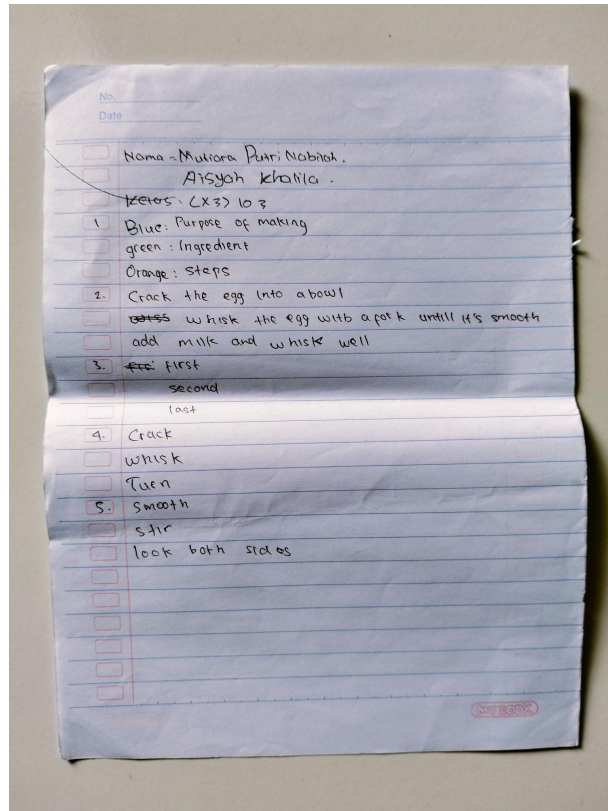 No.
Date
Nama = Mutiara Putri Nabilah.
Aisyah Khalila.
Kelas : (X3) 10 3
1 Blue : Purpose of making
green : Ingredient
Orange : steps
2. Crack the egg into a bowl
whisk the egg with a fork untill it's smooth
add milk and whisk well
3. first
second
last
4. Crack
whisk
Turn
5. Smooth
stir
look both sides
MY BOOK